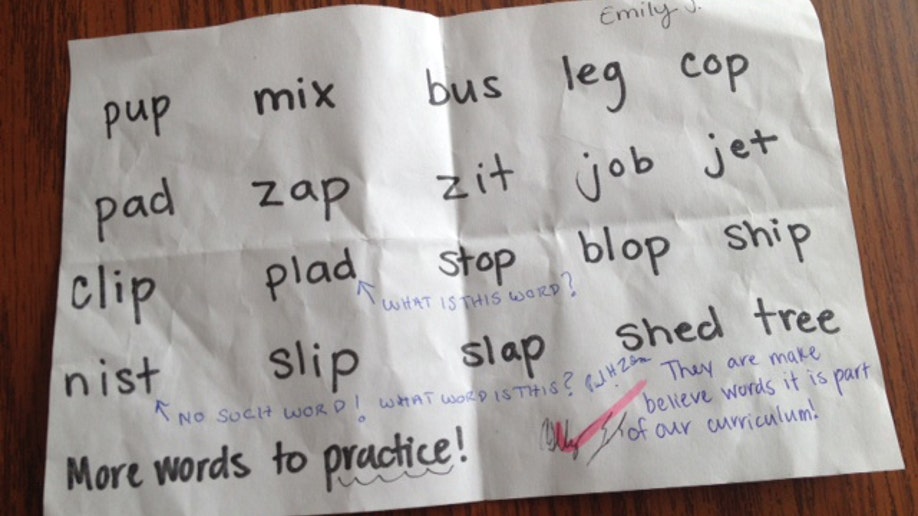 Emily J.
pup mix bus leg cop
pad zap zit job jet
clip plad stop blop ship
WHAT IS THIS WORD?
nist slip slap shed tree
NO SUCH WORD! WHAT WORD IS THIS?
They are make
believe words it is part
of our curriculum!
More words to practice!